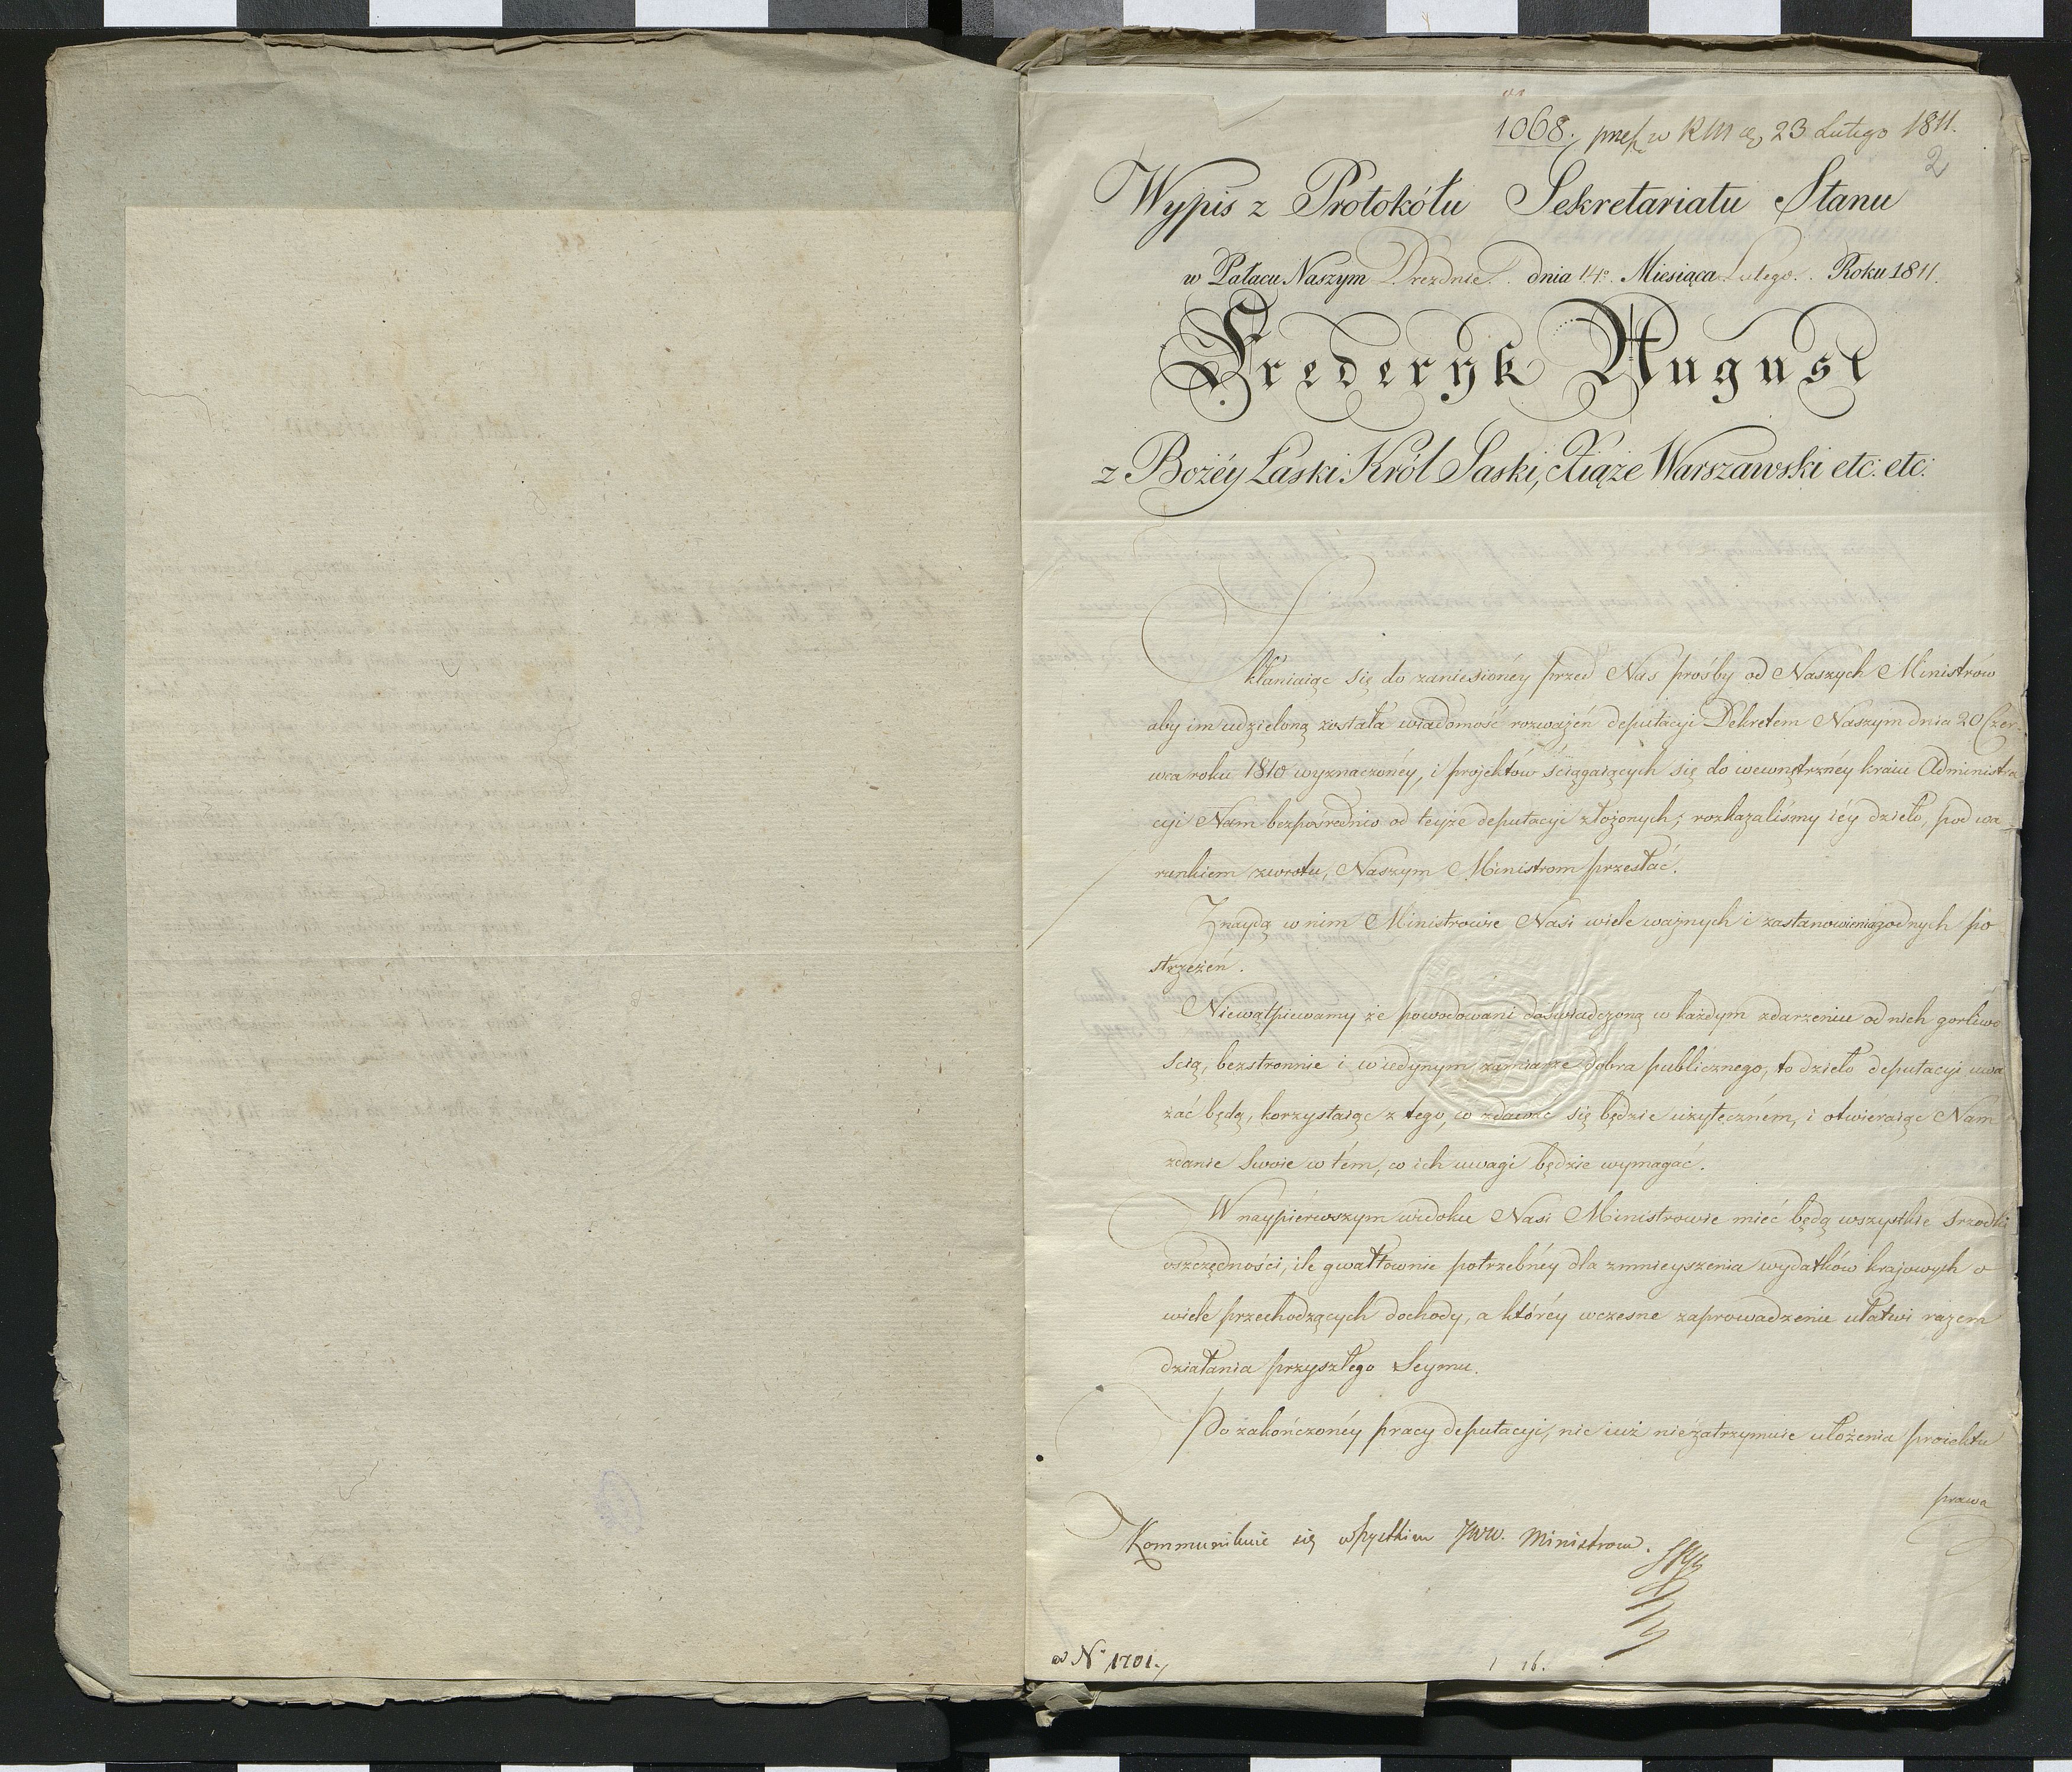 1068. pres. w RM d. 23 Lutego 1811.
2
Wypis z Protokółu Sekretariatu Stanu
w Pałacu Naszym Dreznie. dnia 14o. Miesiąca Lutego. Roku 1811.
Frederyk August
z Bożéy Łaski Król Saski, Xiąże Warszawski etc: etc:
Skłaniaiąc się do zaniesionéy przed Nas prośby od Naszych Ministrów
aby im udzieloną została wiadomość rozważeń deputacyi Dekretem Naszym dnia 20 Czer-
wca roku 1810 wyznaczonéy, i projektów ściągaiących się do wewnętrznéy kraiu Administra
cyi Nam bezpośrednio od teyże deputacyi złożonych; rozkazaliśmy iéy dzieło, pod wa-
runkiem zwrotu, Naszym Ministrom przesłać.
Znaydą w nim Ministrowie Nasi wiele ważnych i zastanowienia godnych po
strzeżeń.
Niewątpiewamy że powodowani doświadczoną w każdym zdarzeniu od nich gorliwo
ścią, bezstronnie i w iedynym zamiarze dobra publicznego, to dzieło deputacyi uwa
żać będą, korzystaiąc z tego, co zdawać się będzie użyteczném, i otwieraiąc Nam
zdanie swoie w tém, co ich uwagi będzie wymagać.
W naypiérwszym widoku Nasi Ministrowie mieć będą wszystkie srzodki
oszczędności, ile gwałtownie potrzebnéy dla zmnieyszenia wydatków krajowych o
wiele przechodzących dochody, a któréy wczesne zaprowadzenie ułatwi razem
działania przyszłego Seymu.
Po zakończonéy pracy deputacyi, nic iuż niezatrzymuie ułożenia proiektu
prawa
Kommunikuie się wszystkim JWW. Ministrom.
ad No 1701.
1 16.